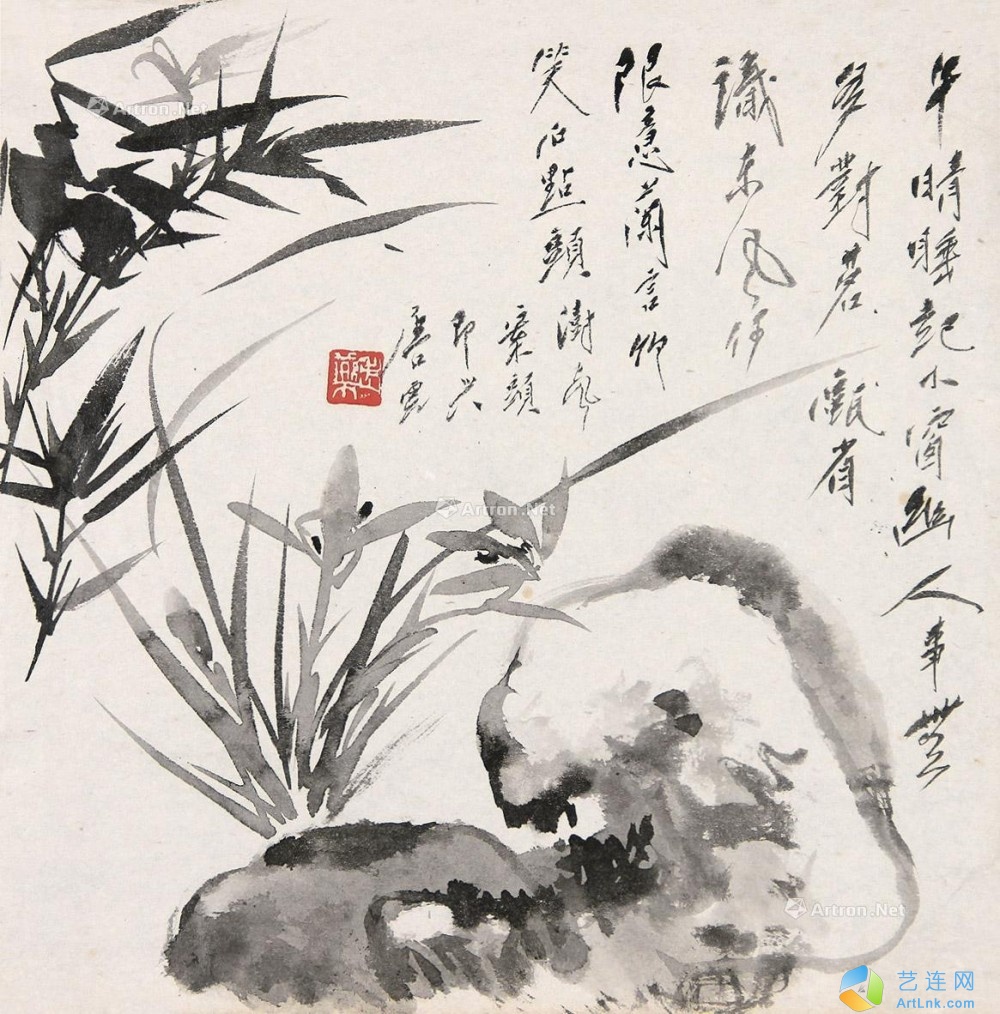 午晴睡起小窗幽人事無
多對茗甌省
識東風无
限意蘭言竹
笑石點頭
案頭
即兴
唐雲
Artron.Net
Artron.Net
Artron.Net
艺连网
ArtLnk.com